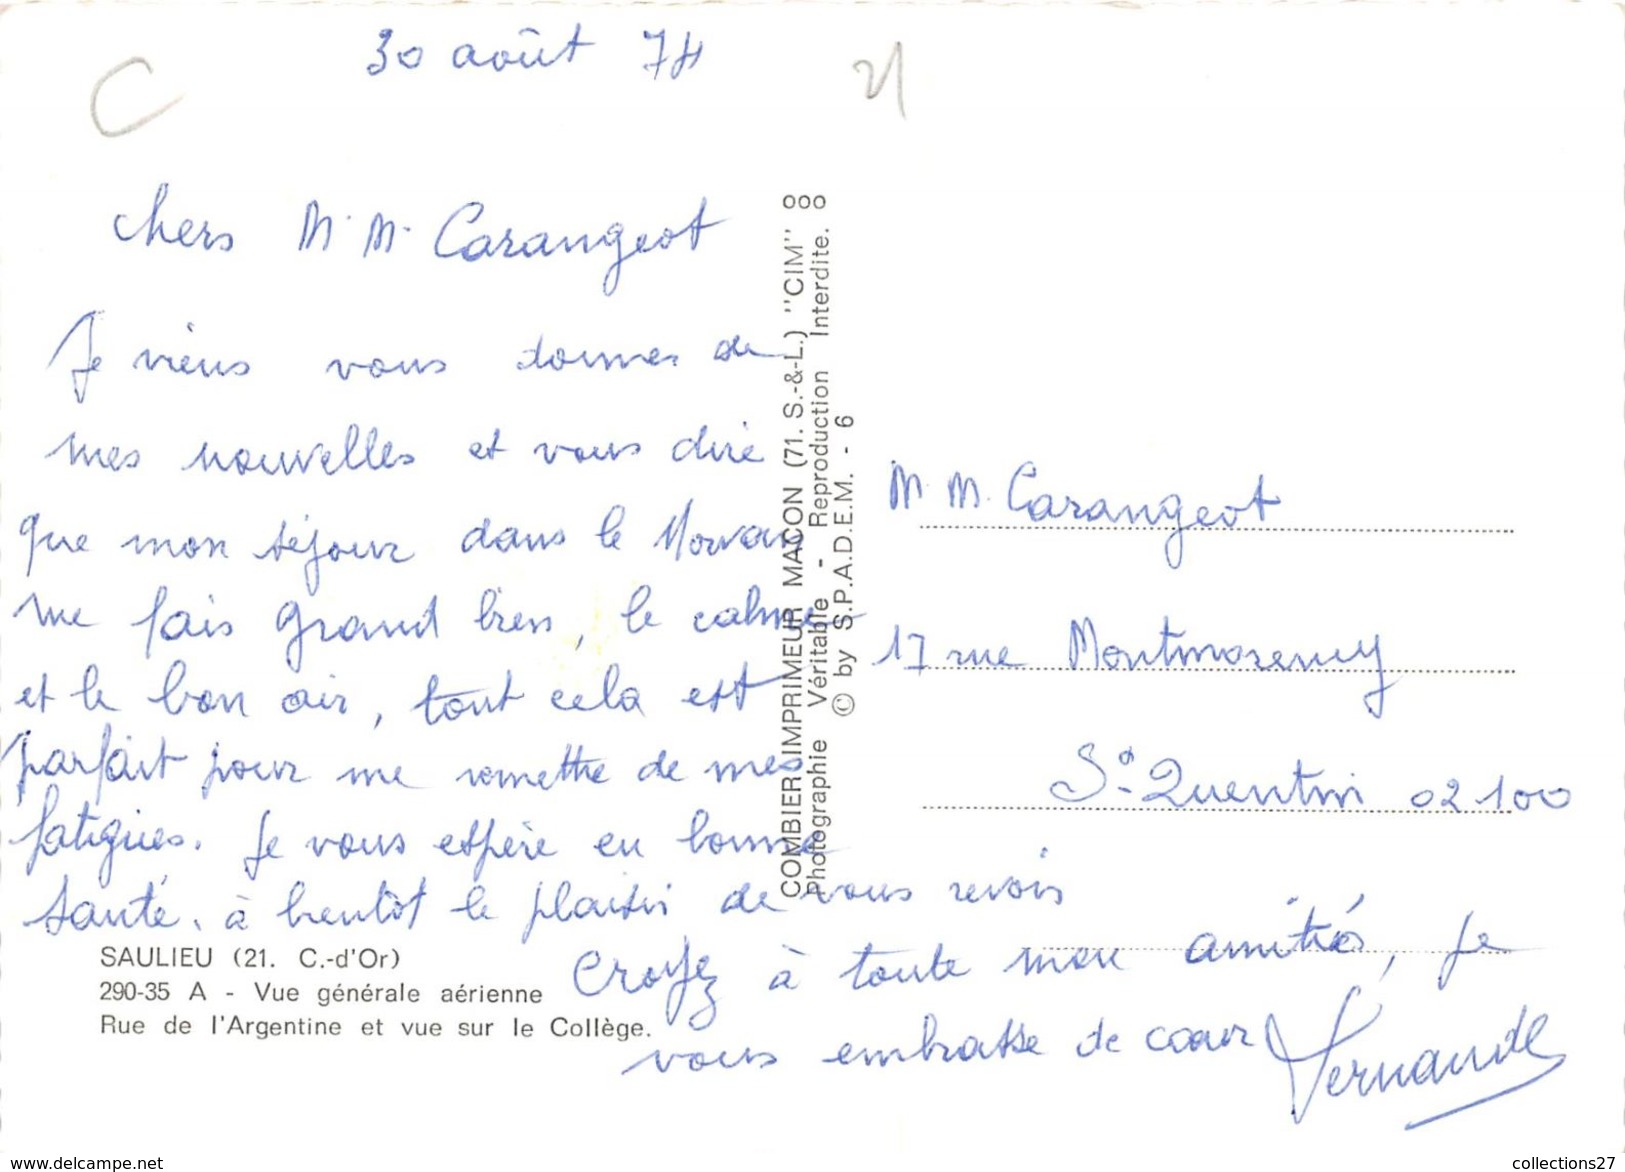 30 août 74
C
21
Chers M. M. Carangeot
Je viens vous donner de
mes nouvelles et vous dire
que mon séjour dans le Morvan
me fais grand bien, le calme
et le bon air, tout cela est
parfait pour me remettre de mes
fatigues. Je vous espère en bonne
santé. à bientôt le plaisir de vous revoir
Croyez à toute mon amitiés, Je
vous embrasse de coeur
Fernande
SAULIEU (21. C.-d'Or)
290-35 A - Vue générale aérienne
Rue de l'Argentine et vue sur le Collège.
COMBIER IMPRIMEUR MACON (71. S.-&-L.) ''CIM''
Photographie Véritable - Reproduction Interdite.
© by S.P.A.D.E.M. - 6
M. M. Carangeot
17 rue Montmorency
St. Quentin 02100
www.delcampe.net
collections27